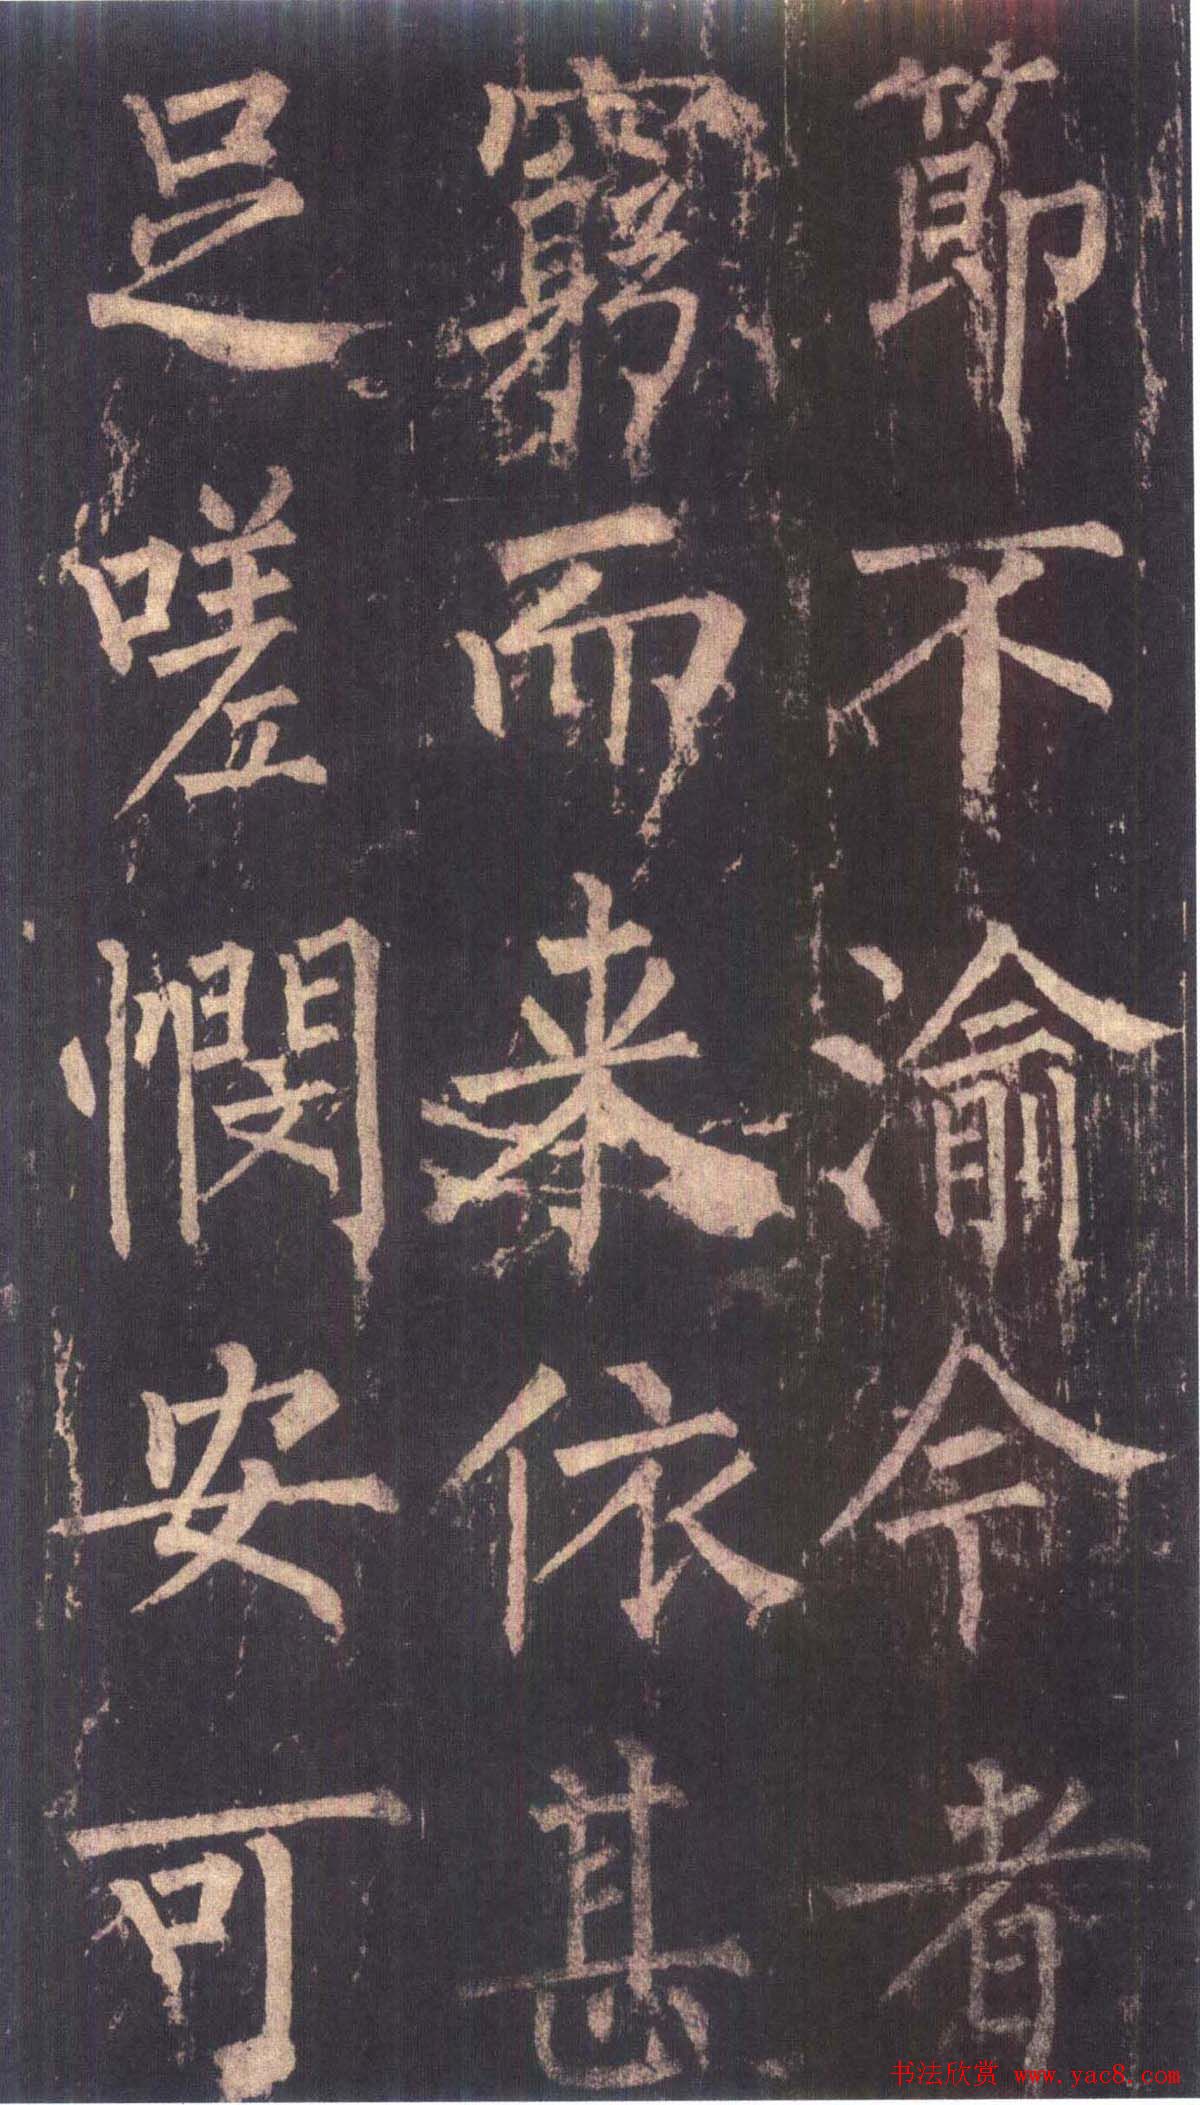 節不渝今者
窮而来依甚
足嗟憫安可
书法欣赏 www.yac8.com